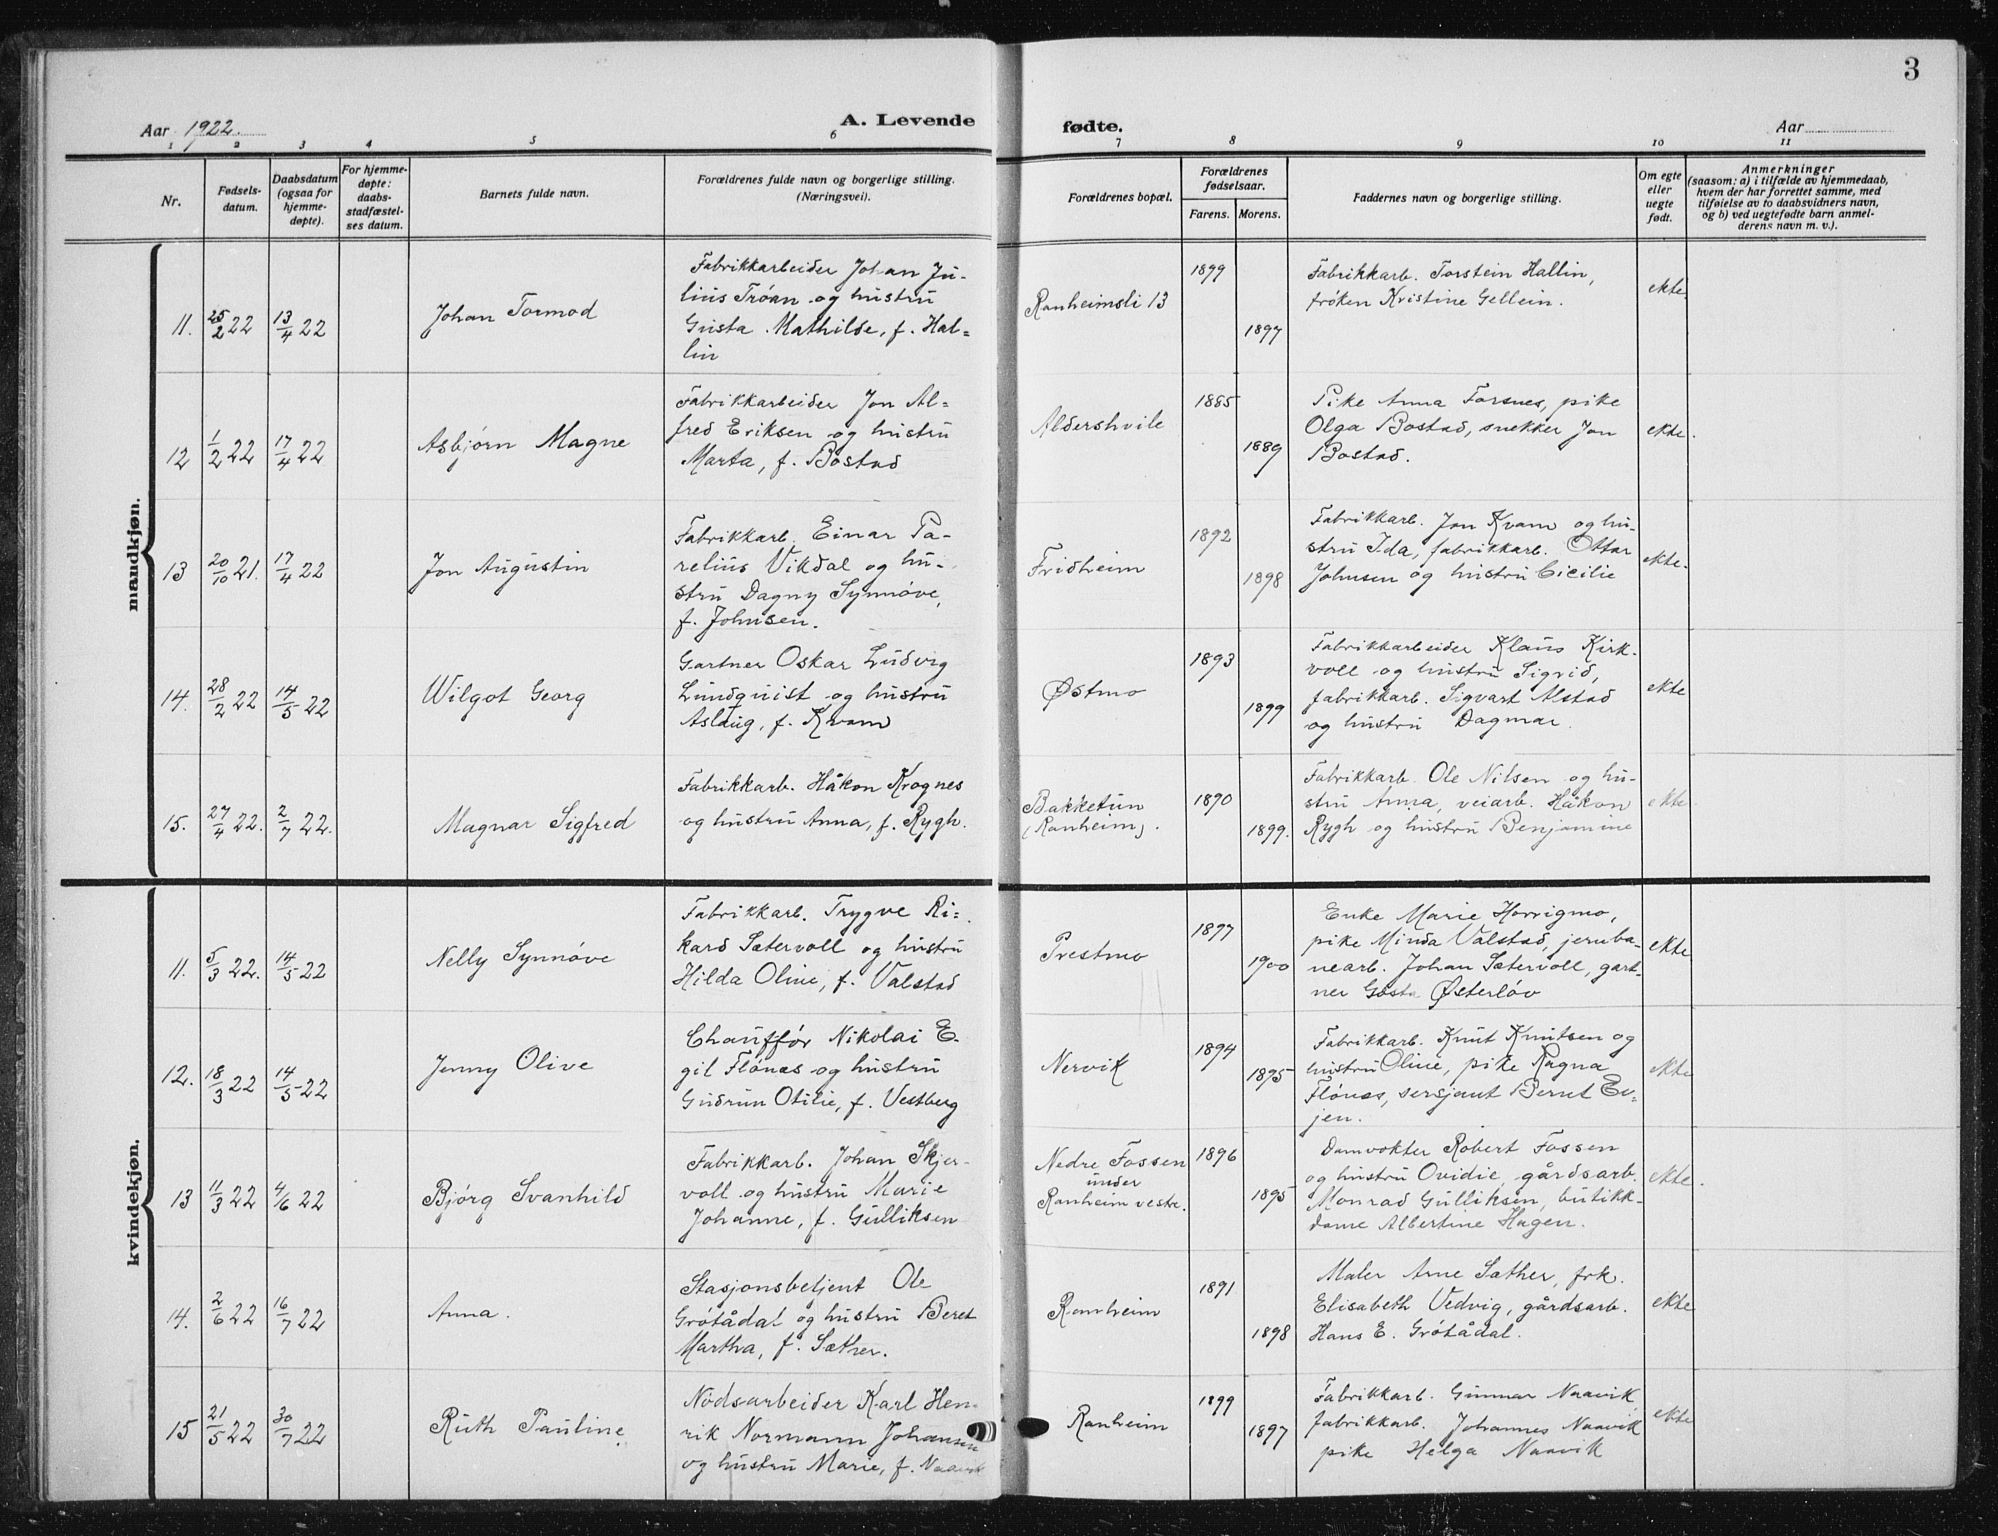 3
Aar 1922.
A. Levende fødte.
Aar
1 2 3 4 5 6 7 8 9 10 11
Nr.
Fødsels-
datum.
Daabsdatum
(ogsaa for
hjemme-
døpte).
For hjemme-
døpte:
daabs-
stadfæstel-
ses datum.
Barnets fulde navn.
Forældrenes fulde navn og borgerlige stilling.
(Næringsvei).
Forældrenes bopæl.
Forældrenes
fødselsaar.
Farens. Morens.
Faddernes navn og borgerlige stilling.
Om egte
eller
uegte
født.
Anmerkninger
(saasom: a) i tilfælde av hjemmedaab,
hvem der har forrettet samme, med
tilføielse av to daabsvidners navn,
og b) ved uegtefødte barn anmel-
derens navn m. v.).
mandkjøn.
11. 25/2 22 13/4 22
Johan Tormod
Fabrikkarbeider Johan Ju-
lius Trøan og hustru
Gusta Mathilde, f. Hal-
lin
Ranheimsli 13
1899
1897
Fabrikkarb. Torstein Hallin,
frøken Kristine Gellein.
ekte.
12 1/2 22 17/4 22
Asbjørn Magne
Fabrikkarbeider Jon Al-
fred Eriksen og hustru
Marta, f. Bostad
Aldershvile
1885
1889
Pike Anna Forsnes, pike
Olga Bostad, snekker Jon
Bostad.
ekte.
13 20/10 21. 17/4 22
Jon Augustin
Fabrikkarb. Einar Pa-
relius Vikdal og hu-
stru Dagny Synnøve,
f. Johnsen.
Fridheim
1892
1898
Fabrikkarb. Jon Kvam og hu-
stru Ida, fabrikkarb. Ottar
Johnsen og hustru Cicilie
ekte.
14. 28/2 22 14/5 22
Wilgot Georg
Gartner Oskar Ludvig
Lundquist og hustru
Aslaug, f. Kvam
Østmo
1893
1899
Fabrikkarbeider Klaus Kirk-
voll og hustru Sigrid,
fabrikkarb. Sigvart Alstad
og hustru Dagmar.
ekte
15. 27/4 22. 2/7 22.
Magnar Sigfred
Fabrikkarb. Håkon Krognes
og hustru Anna, f. Rygh.
Bakketun
(Ranheim).
1890
1899.
Fabrikkarb. Ole Nilsen og hu-
stru Anna, veiarb. Håkon
Rygh og hustru Benjamine
ekte
kvindekjøn.
11. 5/3 22. 14/5 22
Nelly Synnøve
Fabrikkarb. Trygve Ri-
kard Sætervoll og hustru
Hilda Oline, f. Valstad
Prestmo
1897
1900
Enke Marie Horrigmo,
pike Minda Valstad, jernba-
nearb. Johan Sætervoll, gart-
ner Gøsta Østerløv
ekte
12. 18/3 22 14/5 22
Jenny Olive
Chauffør Nikolai E-
gil Flønes og hustru
Gudrun Otilie, f. Vestberg
Nervik
1894
1895
Fabrikkarb. Knut Knutsen og
hustru Oline, pike Ragna
Flønes, sersjant Bernt Ev-
jen.
ekte
13 11/3 22 4/6 22
Bjørg Svanhild
Fabrikkarb. Johan Skjer-
voll og hustru Marie
Johanne, f. Gulliksen
Nedre Fossen
under
Ranheim vestre.
1896
1895
Damvokter Robert Fossen
og hustru Ovidie, gårdsarb.
Monrad Gulliksen, butikk-
dame Albertine Hagen.
ekte.
14. 2/6 22 16/7 22
Anna.
Stasjonsbetjent Ole
Grøtådal og hustru Beret
Martha, f. Sæther.
Ranheim
1891
1898
Maler Arne Sæther, frk.
Elisabeth Vedvig, gårdsarb.
Hans E. Grøtådal.
ekte
15 21/5 22 30/7 22
Ruth Pauline
Nødsarbeider Karl Hen-
rik Normann Johansen
og hustru Marie, f. Naavik
Ranheim
1899
1897
Fabrikkarb. Gunnar Naavik,
fabrikkarb. Johannes Naavik
pike Helga Naavik
ekte